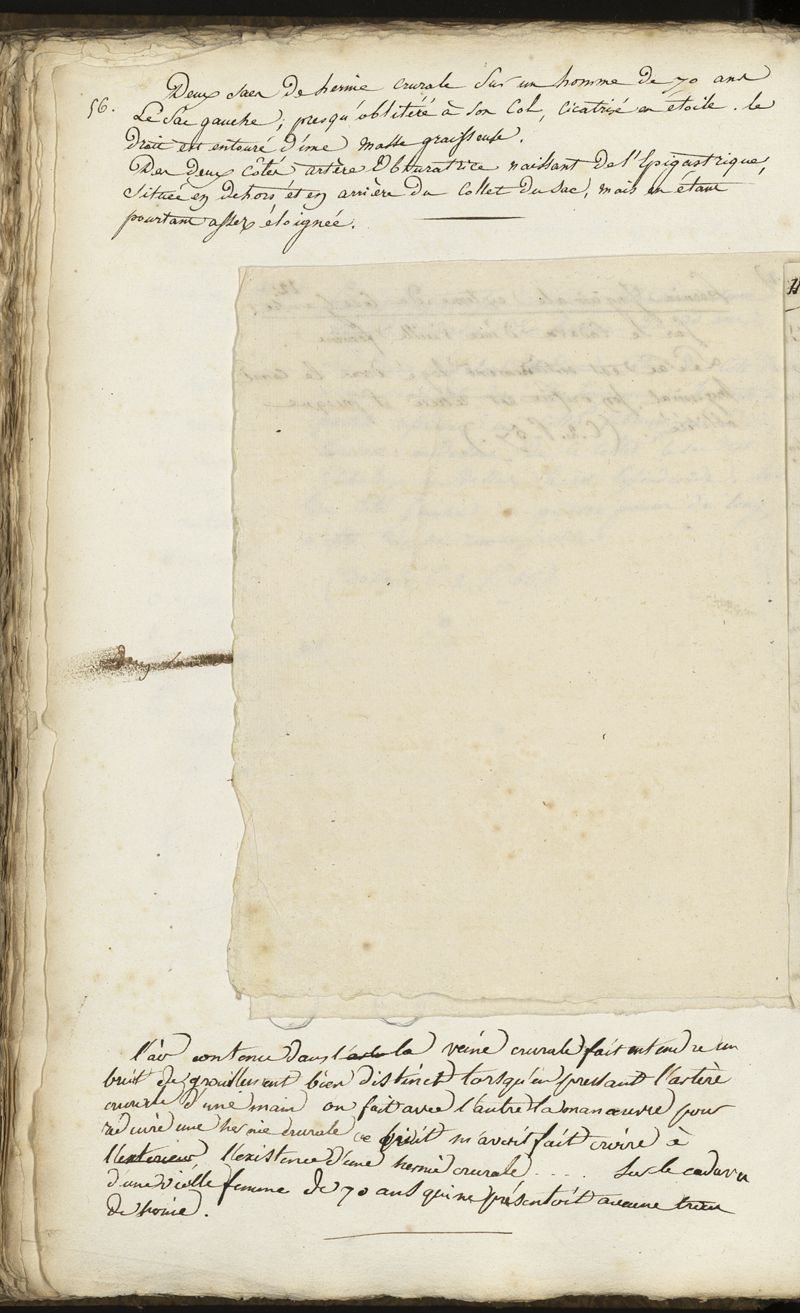 Deux sacs de hernie crurale sur un homme de 70 ans
56. Le sac gauche, presqu'oblitéré à son Col, cicatrisé en étoile. le
droit est entouré d'une masse graisseuse.
Des deux côtés artère Obturatrice naissant de l'Epigastrique,
située en dehors et en arrière du Collet du Sac, mais en étant
pourtant assez éloignée.
l'air contenu dans l' la veine crurale fait entendre un
bruit de grouillement bien distinct lorsqu'en pressant l'artère
crurale d'une main on fait avec l'autre la manœuvre pour
réduire une hernie crurale ce bruit m'avoit fait croire à
l'exterieur l'existence d'une hernie crurale .... Sur le cadavre
d'une vieille femme de 70 ans qui ne présentoit aucune trace
de hernie.